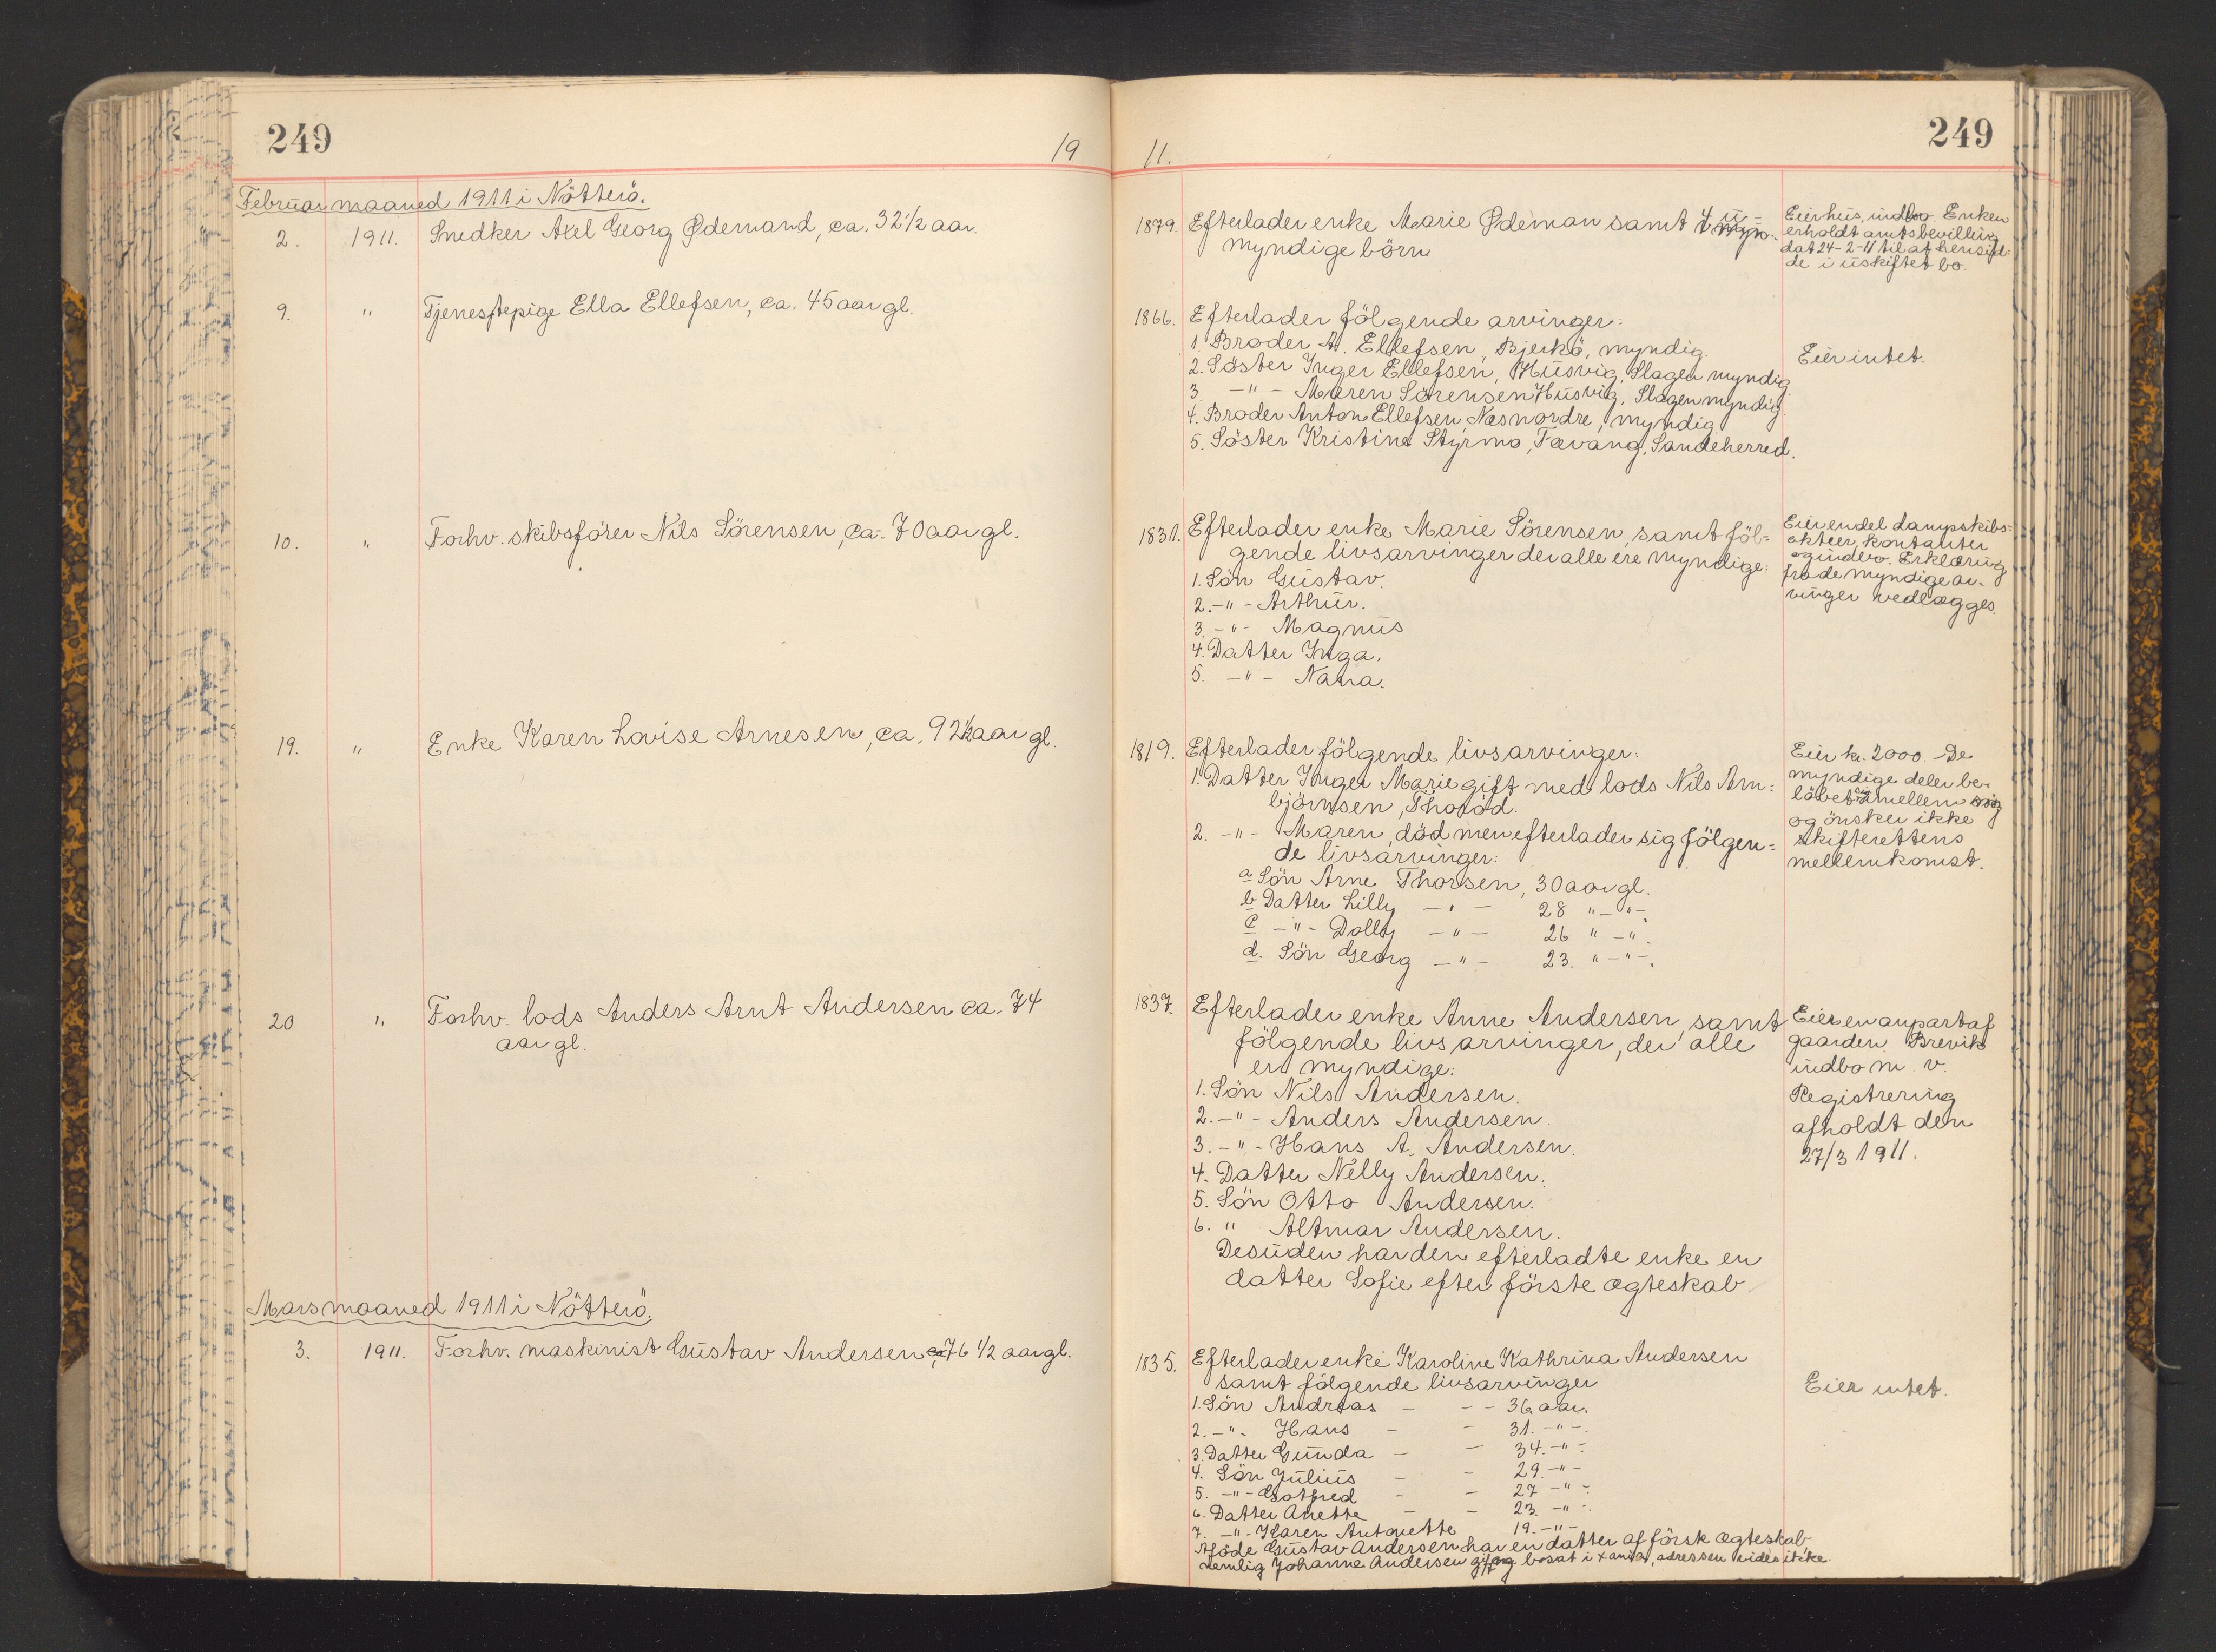 249
19
11.
249
Februar maaned 1911 i Nötterö.
2. 1911. Snedker Axel Georg Ødemand, ca. 32 1/2 aar.
1879. Efterlader enke Marie Ødeman samt 4 u-
myndige börn
Eier hus, indbo. Enken
erholdt amtsbevilling
dat 24-2-11 til at hensid-
de i uskiftet bo.
9. " Tjenestepige Ella Ellefsen, ca. 45 aar gl.
1866. Efterlader fölgende arvinger:
1. Broder A. Ellefsen, Bjerkö, myndig.
2. Söster Inger Ellefsen, Husvig, Slagen myndig
3. -"- Maren Sörensen Husvig, Slagen myndig.
4. Broder Anton Ellefsen Nesnordre, myndig
5. Söster Kristine Styrmo, Tævang, Sandeherred.
Eier intet.
10. " Forhv. skibsförer Nils Sörensen, ca. 70 aar gl.
1831. Efterlader enke Marie Sörensen, samt föl-
gende livsarvinger der alle ere myndige:
1. Sön Gustav.
2. -"- Arthur.
3. -"- Magnus
4. Datter Inga.
5. -"- Nana.
Eier endel dampskibs-
aktier, kontanter
og indbo. Erklæring
fra de myndige ar-
vinger vedlægges.
19. " Enke Karen Lovise Arnesen, ca. 92 1/2 aar gl.
1819. Efterlader fölgende livsarvinger:
1. Datter Inger Marie gift med lods Nils Arn-
björnsen, Thoröd.
2. -"- Maren, död men efterlader sig fölgen-
de livsarvinger:
a Sön Arne Thorsen, 30 aar gl.
b Datter Lilly -"- 28 "-"-
c -"- Dolly -"- 26 "-"-
d. Sön Georg -"- 23. "-"-.
Eier kr. 2000. De
myndige deler be-
löbet imellem sig
og önsker ikke
skifterettens
mellemkomst.
20 " Forhv. lods Anders Arnt Andersen ca. 74
aar gl.
1837. Efterlader enke Anne Andersen, samt
fölgende livsarvinger, der alle
er myndige:
1. Sön Nils Andersen.
2. -"- Anders Andersen.
3. -"- Hans A. Andersen.
4. Datter Nelly Andersen.
5. Sön Otto Andersen.
6. " Altmar Andersen.
Desuden har den efterladte enke en
datter Sofie efter förste ægteskab
Eier en anpart af
gaarden Brevik
indbo m. v.
Registrering
afholdt den
27/3 1911.
Mars maaned 1911 i Nötterö.
3. 1911. Forhv. maskinist Gustav Andersen, 76 1/2 aar gl.
1835. Efterlader enke Karoline Kathrina Andersen
samt fölgende livsarvinger
1. Sön Andreas - - - 36 aar.
2. -"- Hans - - 31. -"-.
3. Datter Gunda - - 34. -"-
4. Sön Julius - - 29. -"-
5. -"- Gotfred - - 27 -"-
6. Datter Anette - - 23. -"-
7. -"- Karen Antonette 19. -"-
Afdöde Gustav Andersen har en datter af försk ægteskab,
nemlig Johanne Andersen gift og bosat i Xania, adressen vides ikke.
Eier intet.